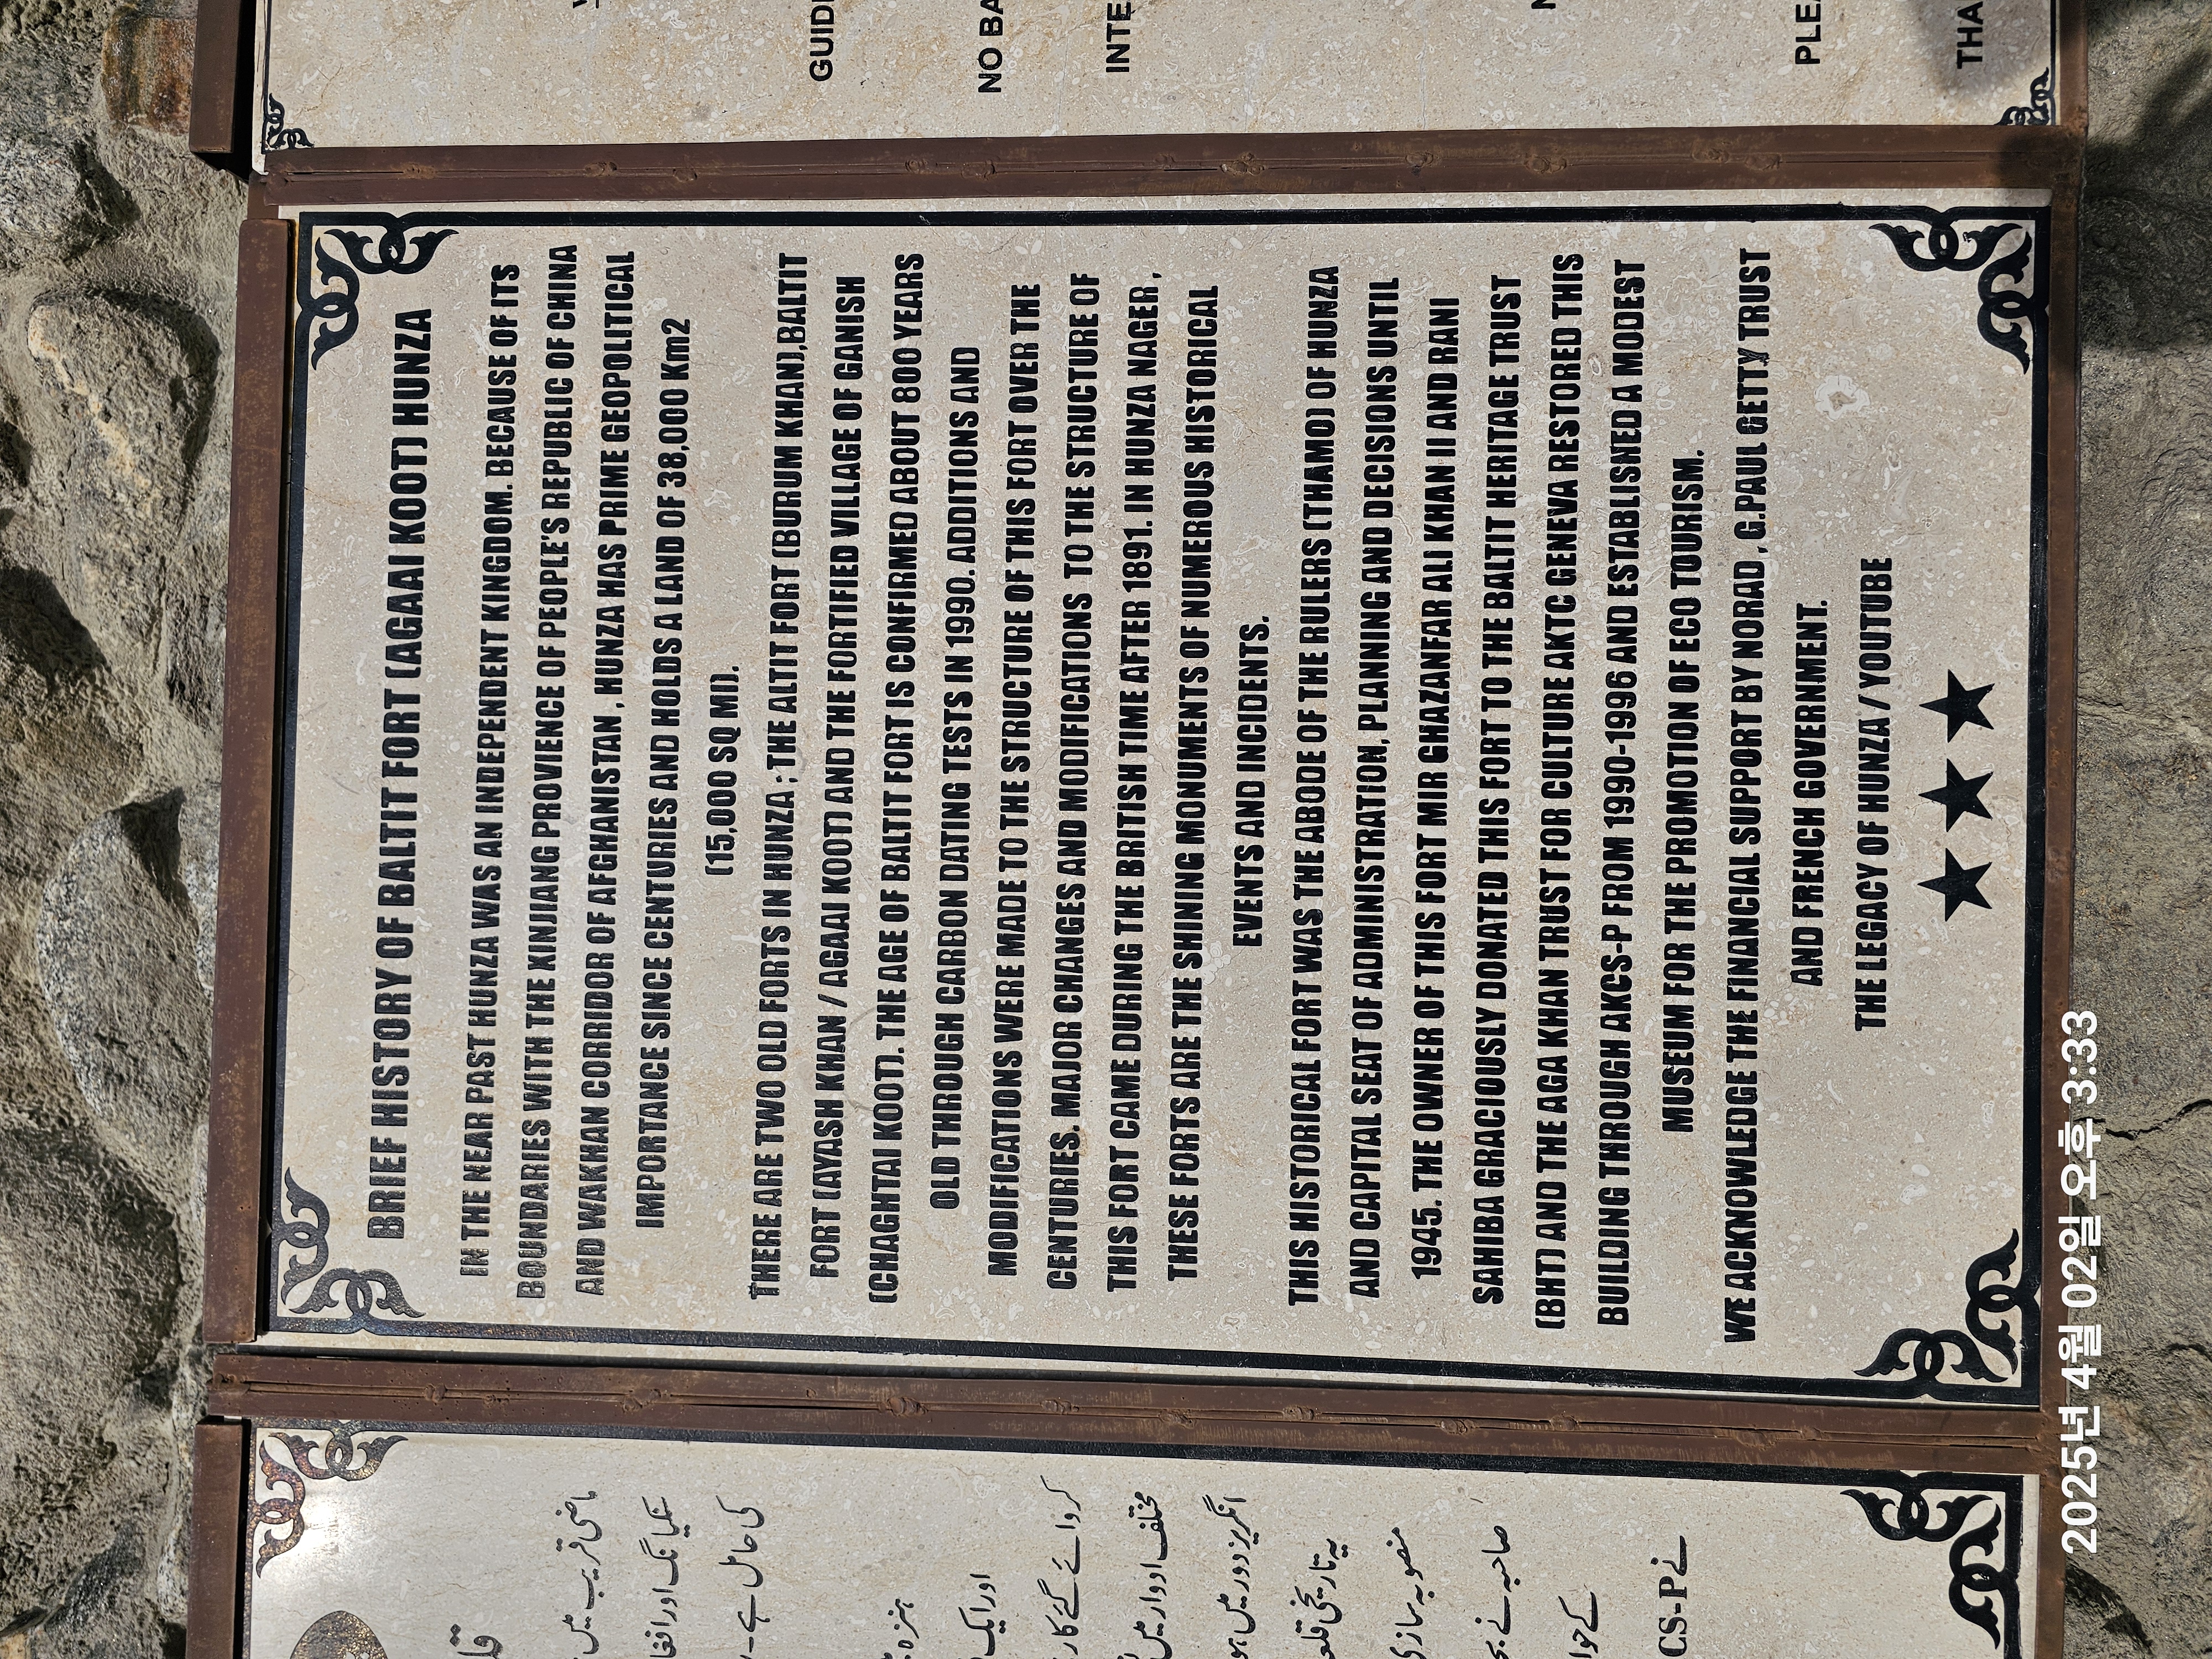 BRIEF HISTORY OF BALTIT FORT (AGAAI KOOT) HUNZA
IN THE NEAR PAST HUNZA WAS AN INDEPENDENT KINGDOM. BECAUSE OF ITS
BOUNDARIES WITH THE XINJIANG PROVIENCE OF PEOPLE'S REPUBLIC OF CHINA
AND WAKHAN CORRIDOR OF AFGHANISTAN , HUNZA HAS PRIME GEOPOLITICAL
IMPORTANCE SINCE CENTURIES AND HOLDS A LAND OF 38,000 Km2
(15,000 SQ MI).
THERE ARE TWO OLD FORTS IN HUNZA ; THE ALTIT FORT (BURUM KHAN),BALTIT
FORT (AYASH KHAN / AGAAI KOOT) AND THE FORTIFIED VILLAGE OF GANISH
(CHAGHTAI KOOT). THE AGE OF BALTIT FORT IS CONFIRMED ABOUT 800 YEARS
OLD THROUGH CARBON DATING TESTS IN 1990. ADDITIONS AND
MODIFICATIONS WERE MADE TO THE STRUCTURE OF THIS FORT OVER THE
CENTURIES. MAJOR CHANGES AND MODIFICATIONS TO THE STRUCTURE OF
THIS FORT CAME DURING THE BRITISH TIME AFTER 1891. IN HUNZA NAGER ,
THESE FORTS ARE THE SHINING MONUMENTS OF NUMEROUS HISTORICAL
EVENTS AND INCIDENTS.
THIS HISTORICAL FORT WAS THE ABODE OF THE RULERS (THAMO) OF HUNZA
AND CAPITAL SEAT OF ADMINISTRATION, PLANNING AND DECISIONS UNTIL
1945. THE OWNER OF THIS FORT MIR GHAZANFAR ALI KHAN II AND RANI
SAHIBA GRACIOUSLY DONATED THIS FORT TO THE BALTIT HERITAGE TRUST
(BHT) AND THE AGA KHAN TRUST FOR CULTURE AKTC GENEVA RESTORED THIS
BUILDING THROUGH AKCS-P FROM 1990-1996 AND ESTABLISHED A MODEST
MUSEUM FOR THE PROMOTION OF ECO TOURISM.
WE ACKNOWLEDGE THE FINANCIAL SUPPORT BY NORAD , G.PAUL GETTY TRUST
AND FRENCH GOVERNMENT.
THE LEGACY OF HUNZA / YOUTUBE
ماضی قریب میں
سنکیانگ اور افغا
کی حامل ہے۔
ہنزہ
اور ایک
کروائے گئے کار
مختلف ادوار میں
انگریز دور میں ہو
یہ تاریخی قلعہ
منصوبہ سازی
صاحبہ نے
کے حوا
نے CS-P
GUID
NO BA
INTE
PLEA
THA
2025년 4월 02일 오후 3:33